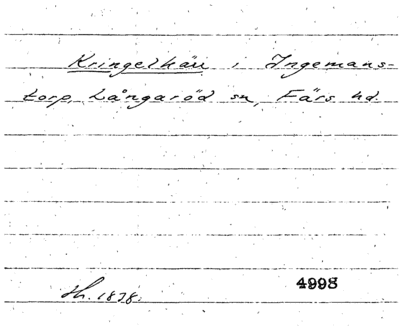 Kringelkärr i Ingemans-
torp, Långaröd sn, Färs hd.
Sk. 1838.
4998